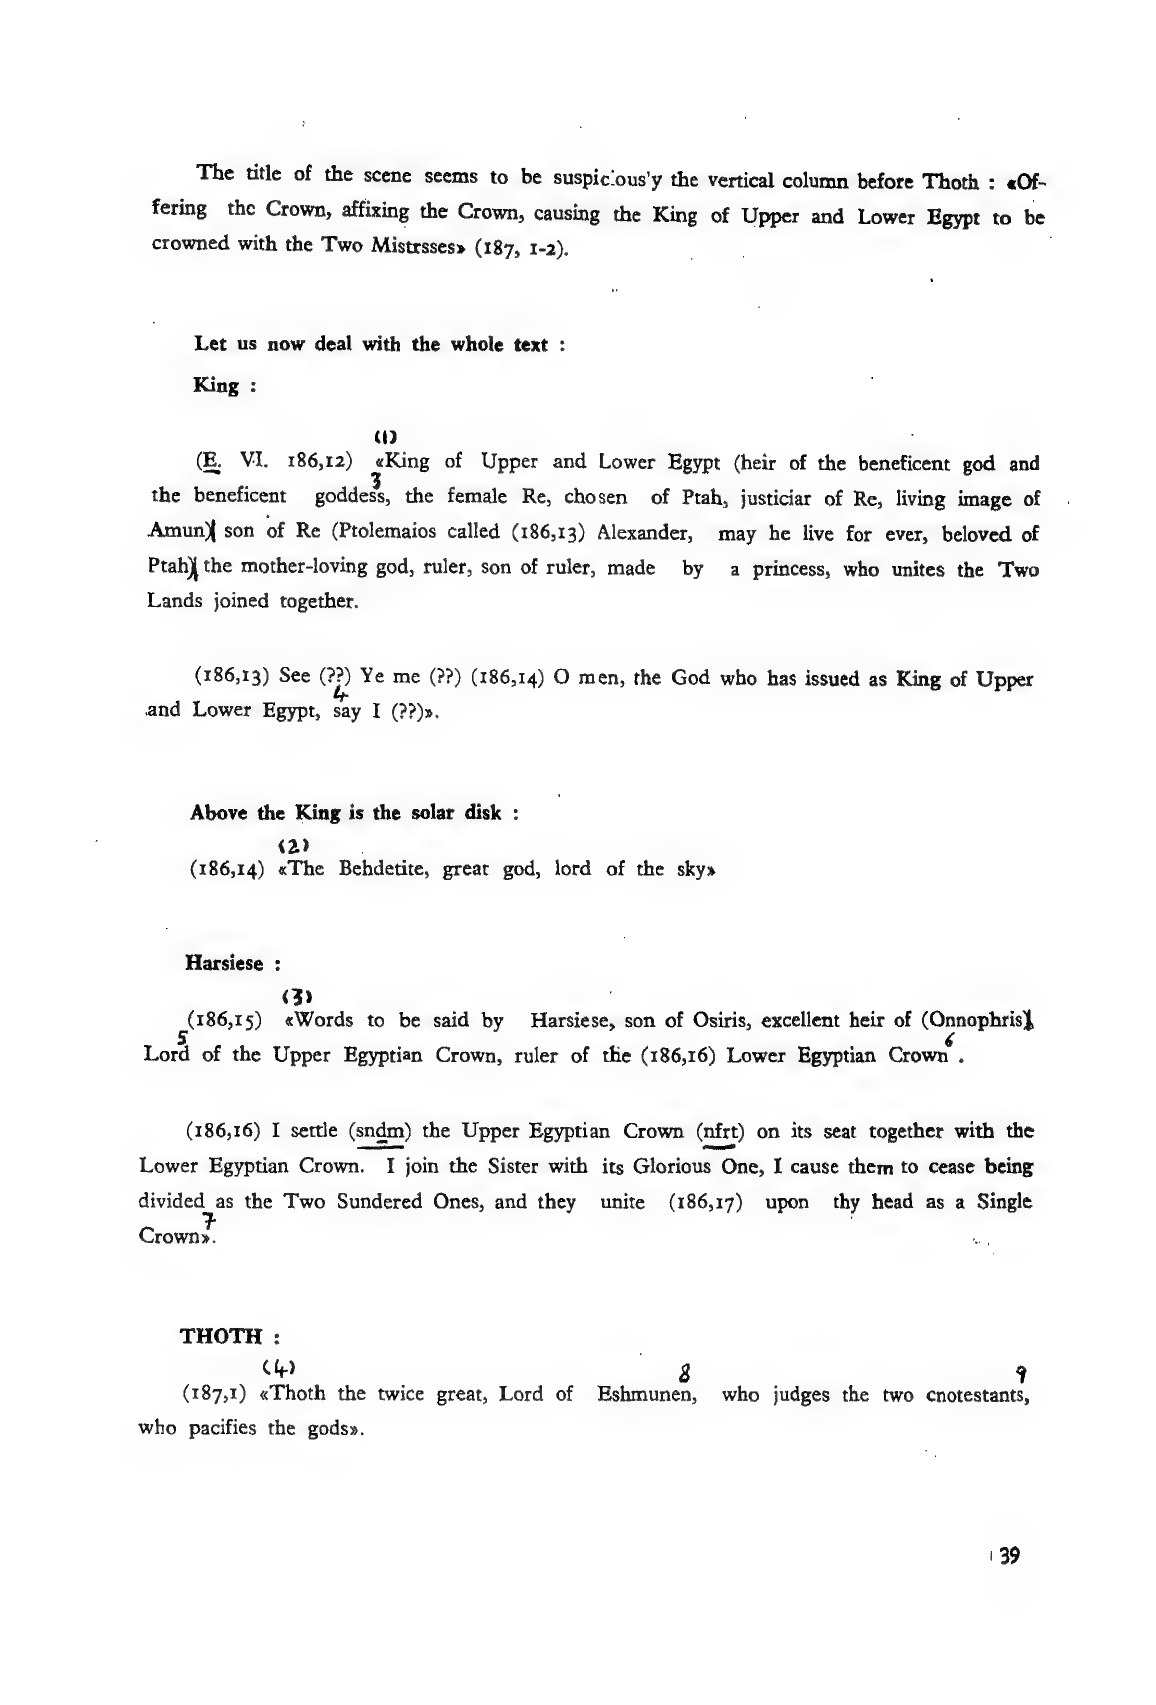 The title of the scene seems to be suspic:ous'y the vertical column before Thoth : «Of-
fering the Crown, affixing the Crown, causing the King of Upper and Lower Egypt to be
crowned with the Two Mistrsses» (187, 1-2).
Let us now deal with the whole text :
King :
(1)
(E. VI. 186,12) «King of Upper and Lower Egypt (heir of the beneficent god and
3
the beneficent goddess, the female Re, chosen of Ptah, justiciar of Re, living image of
Amun)| son of Re (Ptolemaios called (186,13) Alexander, may he live for ever, beloved of
Ptah)| the mother-loving god, ruler, son of ruler, made by a princess, who unites the Two
Lands joined together.
(186,13) See (??) Ye me (??) (186,14) O men, the God who has issued as King of Upper
4
and Lower Egypt, say I (??)».
Above the King is the solar disk :
(2)
(186,14) «The Behdetite, great god, lord of the sky»
Harsiese :
(3)
(186,15) «Words to be said by Harsiese, son of Osiris, excellent heir of (Onnophris)|
5 6
Lord of the Upper Egyptian Crown, ruler of the (186,16) Lower Egyptian Crown .
(186,16) I settle (sndm) the Upper Egyptian Crown (nfrt) on its seat together with the
Lower Egyptian Crown. I join the Sister with its Glorious One, I cause them to cease being
divided as the Two Sundered Ones, and they unite (186,17) upon thy head as a Single
7
Crown».
THOTH :
(4) 8 9
(187,1) «Thoth the twice great, Lord of Eshmunen, who judges the two cnotestants,
who pacifies the gods».
139